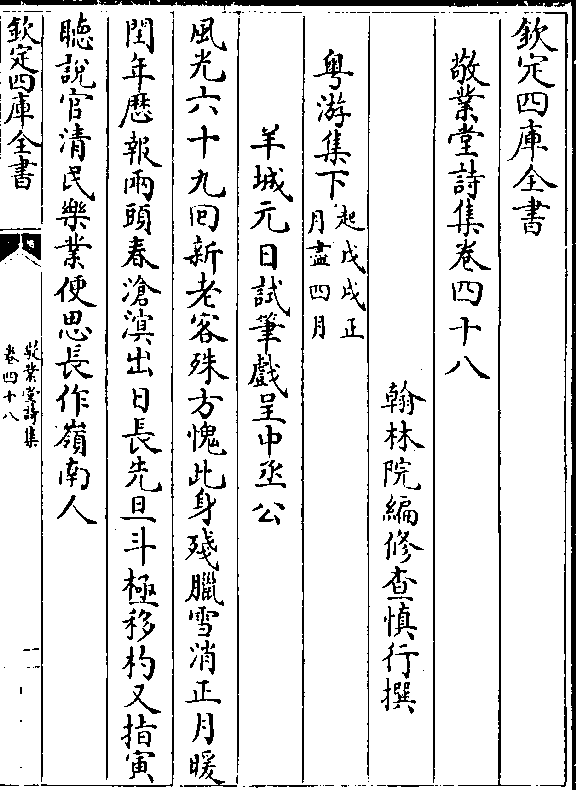 欽定四庫全書
敬業堂詩集卷四十八
翰林院編修查慎行撰
粤游集下起戊戌正
月盡四月
羊城元日試筆戲呈中丞公
風光六十九回新老客殊方愧此身殘臘雪消正月暖
閏年歴報兩頭春滄溟出日長先旦斗極移杓又指寅
聽説官清民樂業便思長作嶺南人
欽定四庫全書
敬業堂詩集
卷四十八
一